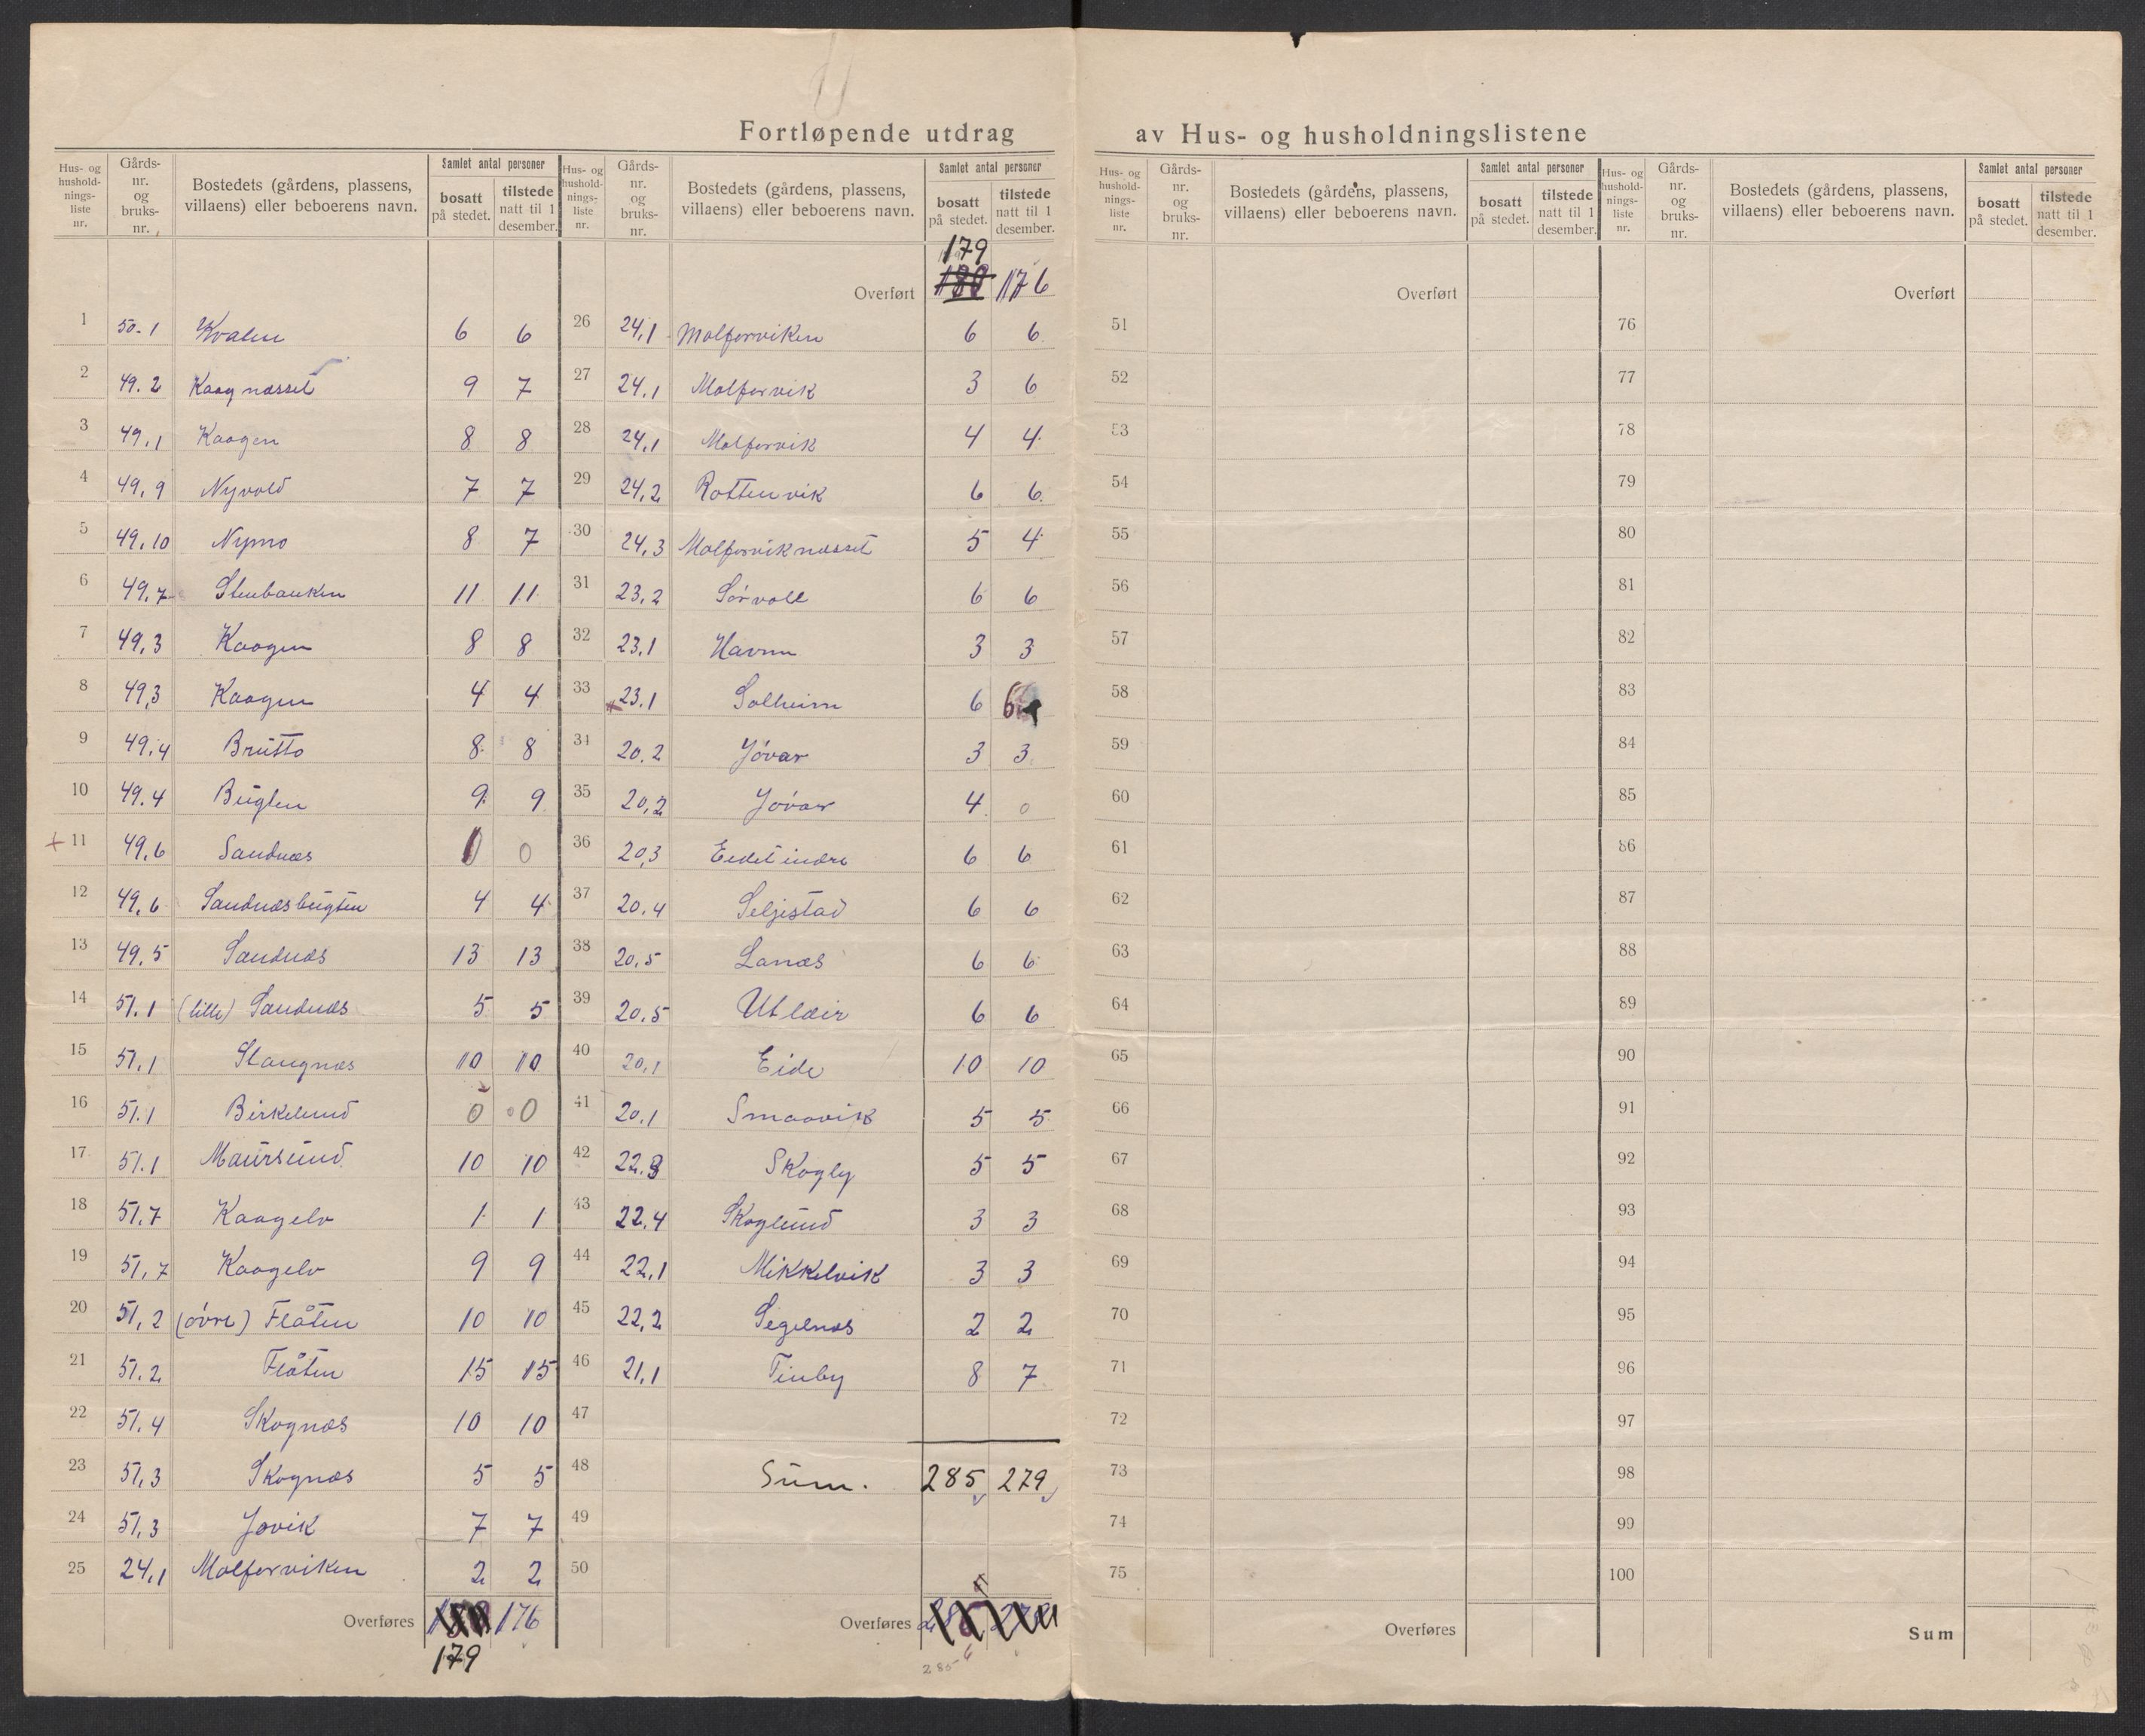 Fortløpende utdrag av Hus- og husholdningslistene
Hus- og hushold-nings-liste nr. Gårds-nr. og bruks-nr. Bostedets (gårdens, plassens, villaens) eller beboerens navn. Samlet antal personer bosatt på stedet. tilstede natt til 1 desember.
1 50.1 Kvalen 6 6
2 49.2 Kaagnæsset 9 7
3 49,1 Kaagen 8 8
4 49,9 Nyvold 7 7
5 49,10 Nymo 8 7
6 49,7 Stenbanken 11 11
7 49,3 Kaagen 8 8
8 49,3 Kaagen 4 4
9 49,4 Brutto 8 8
10 49.4 Bugten 9 9
11 49,6 Sandnæs 0 0
12 49,6 Sandnæsbugten 4 4
13 49,5 Sandnæs 13 13
14 51.1 (lille) Sandnæs 5 5
15 51,1 Stangnæs 10 10
16 51.1 Birkelund 0 0
17 51.1 Maursund 10 10
18 51,7 Kaagelv 1 1
19 51,7 Kaagelv 9 9
20 51,2 (øvre) Flåten 10 10
21 51.2 Flåten 15 15
22 51,4 Skognæs 10 10
23 51,3 Skognæs 5 5
24 51,3 Jøvik 7 7
25 24,1 Molforviken 2 2
Overføres 176
179
Hus- og hushold-nings-liste nr. Gårds-nr. og bruks-nr. Bostedets (gårdens, plassens, villaens) eller beboerens navn. Samlet antal personer bosatt på stedet. tilstede natt til 1 desember.
179
Overført 180 176
26 24,1 Molforviken 6 6
27 24,1 Molforvik 3 6
28 24,1 Molforvik 4 4
29 24,2 Rottenvik 6 6
30 24,3 Molforviknæsset 5 4
31 23,2 Sørvoll 6 6
32 23,1 Havnn 3 3
33 23.1 Solheim 6 6
34 20.2 Jøvar 3 3
35 20,2 Jøvar 4 0
36 20,3 Eidet indre 6 6
37 20,4 Seljestad 6 6
38 20,5 Lanæs 6 6
39 20,5 Utlæir 6 6
40 20,1 Eide 10 10
41 20,1 Smaavik 5 5
42 22.3 Skogly 5 5
43 22.4 Skoglund 3 3
44 22,1 Mikkelvik 3 3
45 22,2 Segelnæs 2 2
46 21,1 Tinby 8 7
47
48 Sum. 285 279
49
50
Overføres
285
Hus- og hushold-nings-liste nr. Gårds-nr. og bruks-nr. Bostedets (gårdens, plassens, villaens) eller beboerens navn. Samlet antal personer bosatt på stedet. tilstede natt til 1 desember.
Overført
51
52
53
54
55
56
57
58
59
60
61
62
63
64
65
66
67
68
69
70
71
72
73
74
75
Overføres
Hus- og hushold-nings-liste nr. Gårds-nr. og bruks-nr. Bostedets (gårdens, plassens, villaens) eller beboerens navn. Samlet antal personer bosatt på stedet. tilstede natt til 1 desember.
Overført
76
77
78
79
80
81
82
83
84
85
86
87
88
89
90
91
92
93
94
95
96
97
98
99
100
Sum